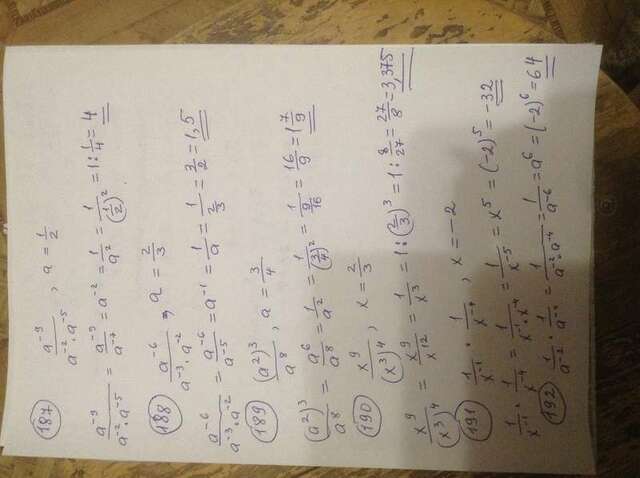 187 a⁻⁹/(a⁻²·a⁻⁵), a = 1/2
a⁻⁹/(a⁻²·a⁻⁵) = a⁻⁹/a⁻⁷ = a⁻² = 1/a² = 1/(1/2)² = 1:1/4 = 4
188 a⁻⁶/(a⁻³·a⁻²), a = 2/3
a⁻⁶/(a⁻³·a⁻²) = a⁻⁶/a⁻⁵ = a⁻¹ = 1/a = 1/(2/3) = 3/2 = 1,5
189 (a²)³/a⁸, a = 3/4
(a²)³/a⁸ = a⁶/a⁸ = 1/a² = 1/(3/4)² = 1/(9/16) = 16/9 = 1 7/9
190 x⁹/(x³)⁴, x = 2/3
x⁹/(x³)⁴ = x⁹/x¹² = 1/x³ = 1:(2/3)³ = 1:8/27 = 27/8 = 3,375
191 1/x⁻¹ · 1/x⁻⁴, x = -2
1/x⁻¹ · 1/x⁻⁴ = 1/(x⁻¹·x⁻⁴) = 1/x⁻⁵ = x⁵ = (-2)⁵ = -32
192 1/a⁻² · 1/a⁻⁴ = 1/(a⁻²·a⁻⁴) = 1/a⁻⁶ = a⁶ = (-2)⁶ = 64